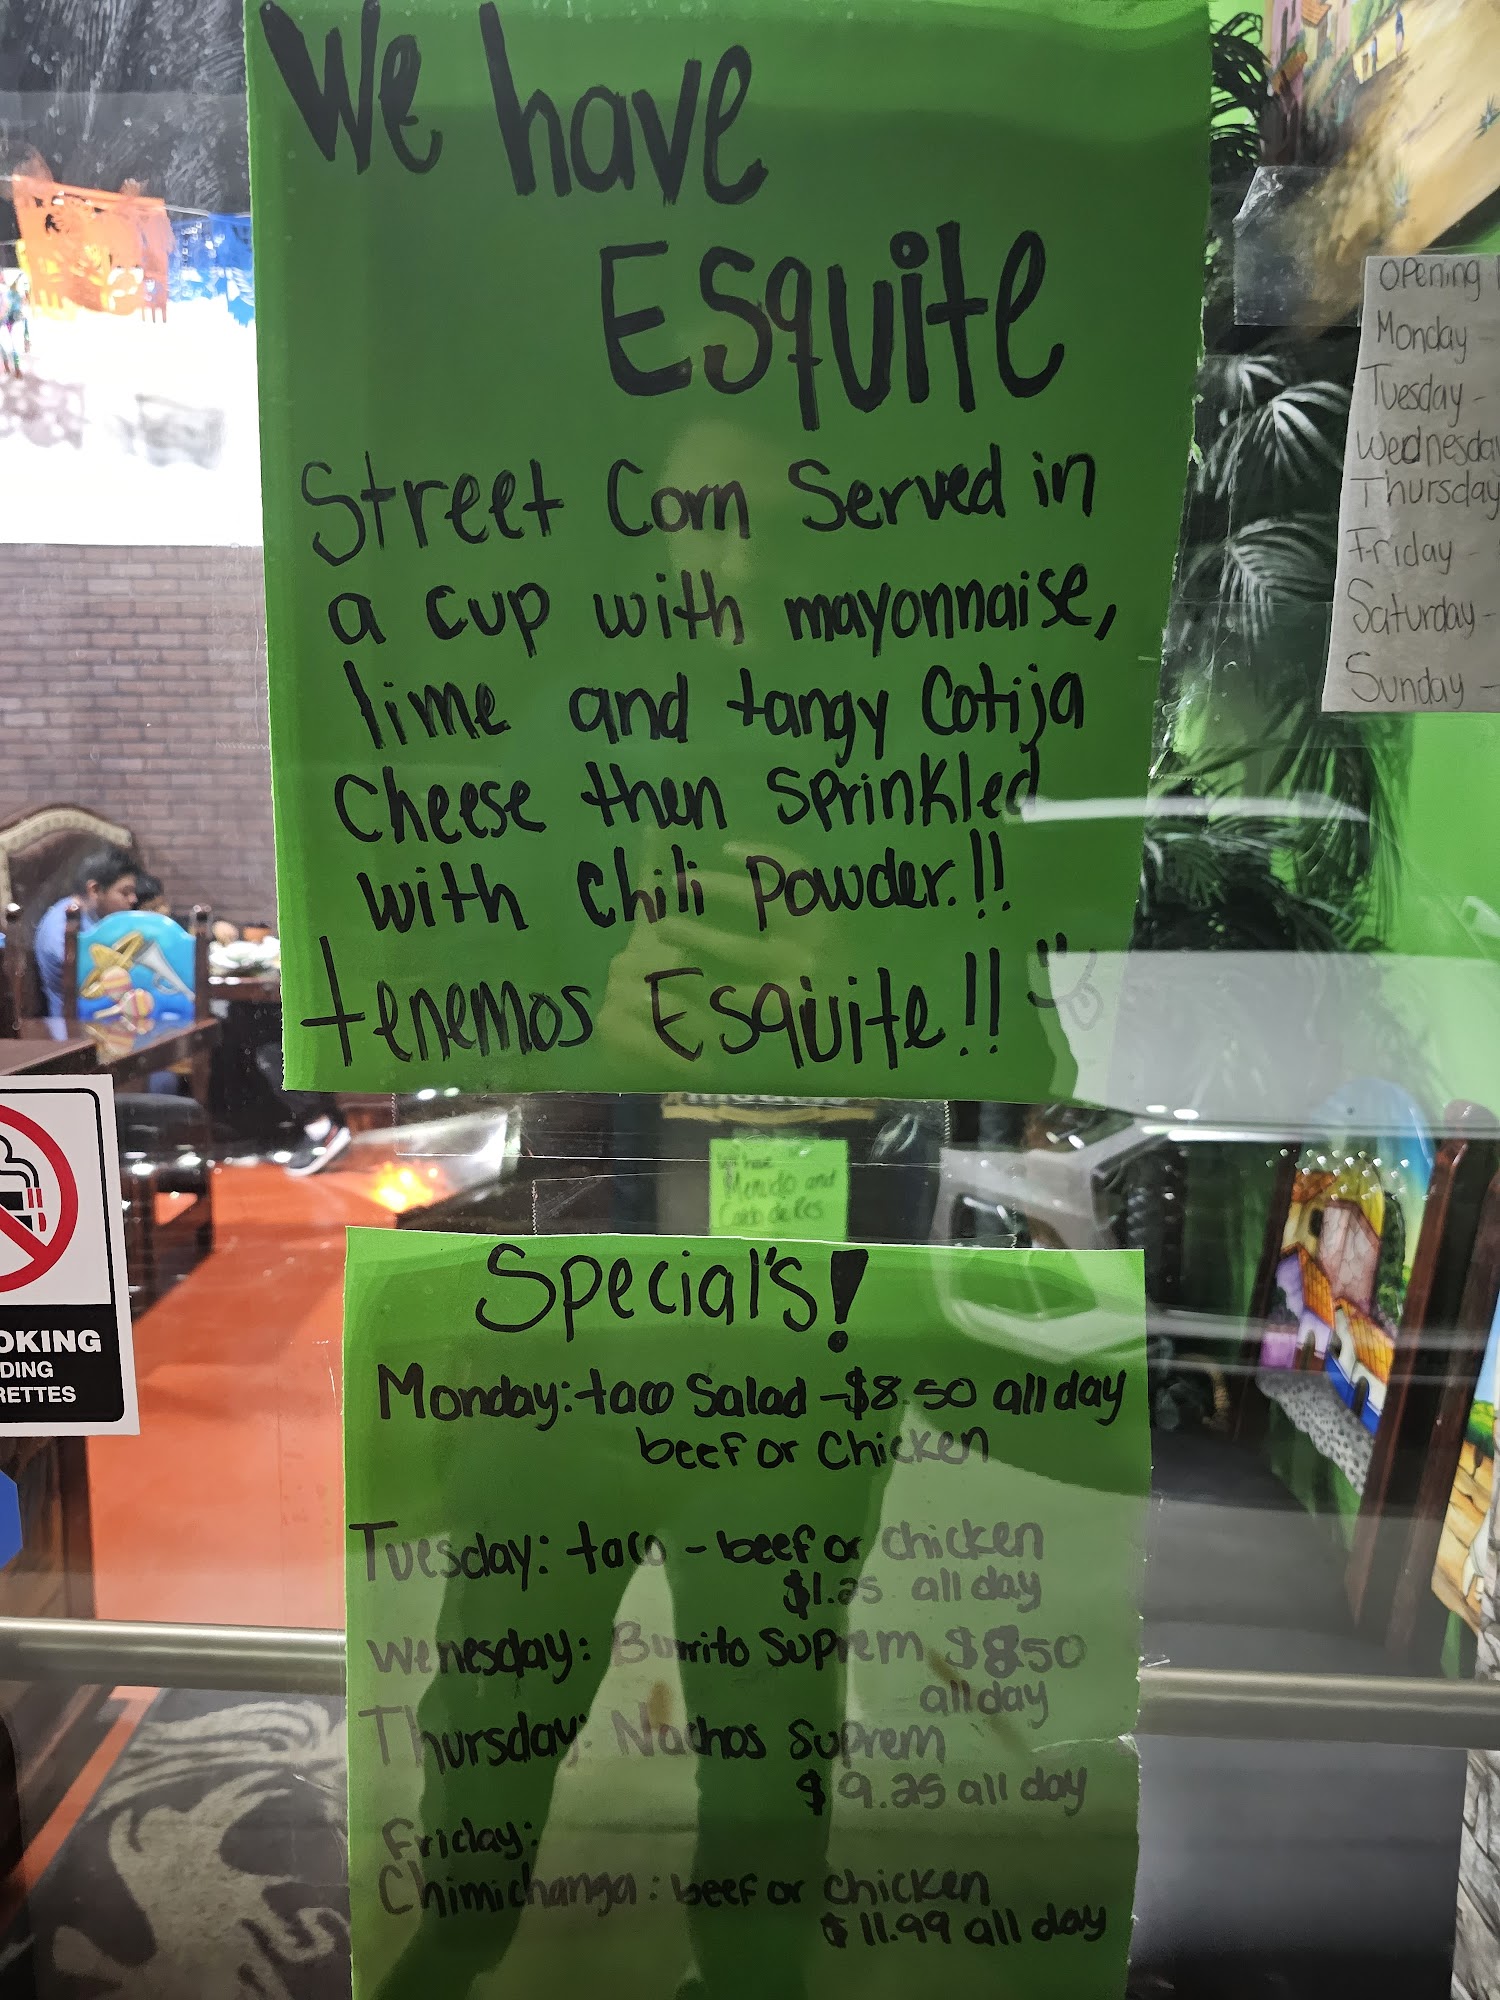 We have
Esquite
Street Corn Served in
a cup with mayonnaise,
lime and tangy Cotija
Cheese then Sprinkled
with Chili Powder.!!
tenemos Esquite!!
Opening
Monday -
Tuesday -
Wednesday
Thursday
Friday -
Saturday -
Sunday -
OKING
DING
RETTES
Menudo and
Special's!
Monday: taco Salad - $8.50 all day
beef or Chicken
Tuesday: taco - beef or chicken
$1.25 all day
Wenesday: Burrito Suprem $8.50
all day
Thursday: Nachos Suprem
$9.25 all day
Friday:
Chimichanga: beef or chicken
$11.99 all day